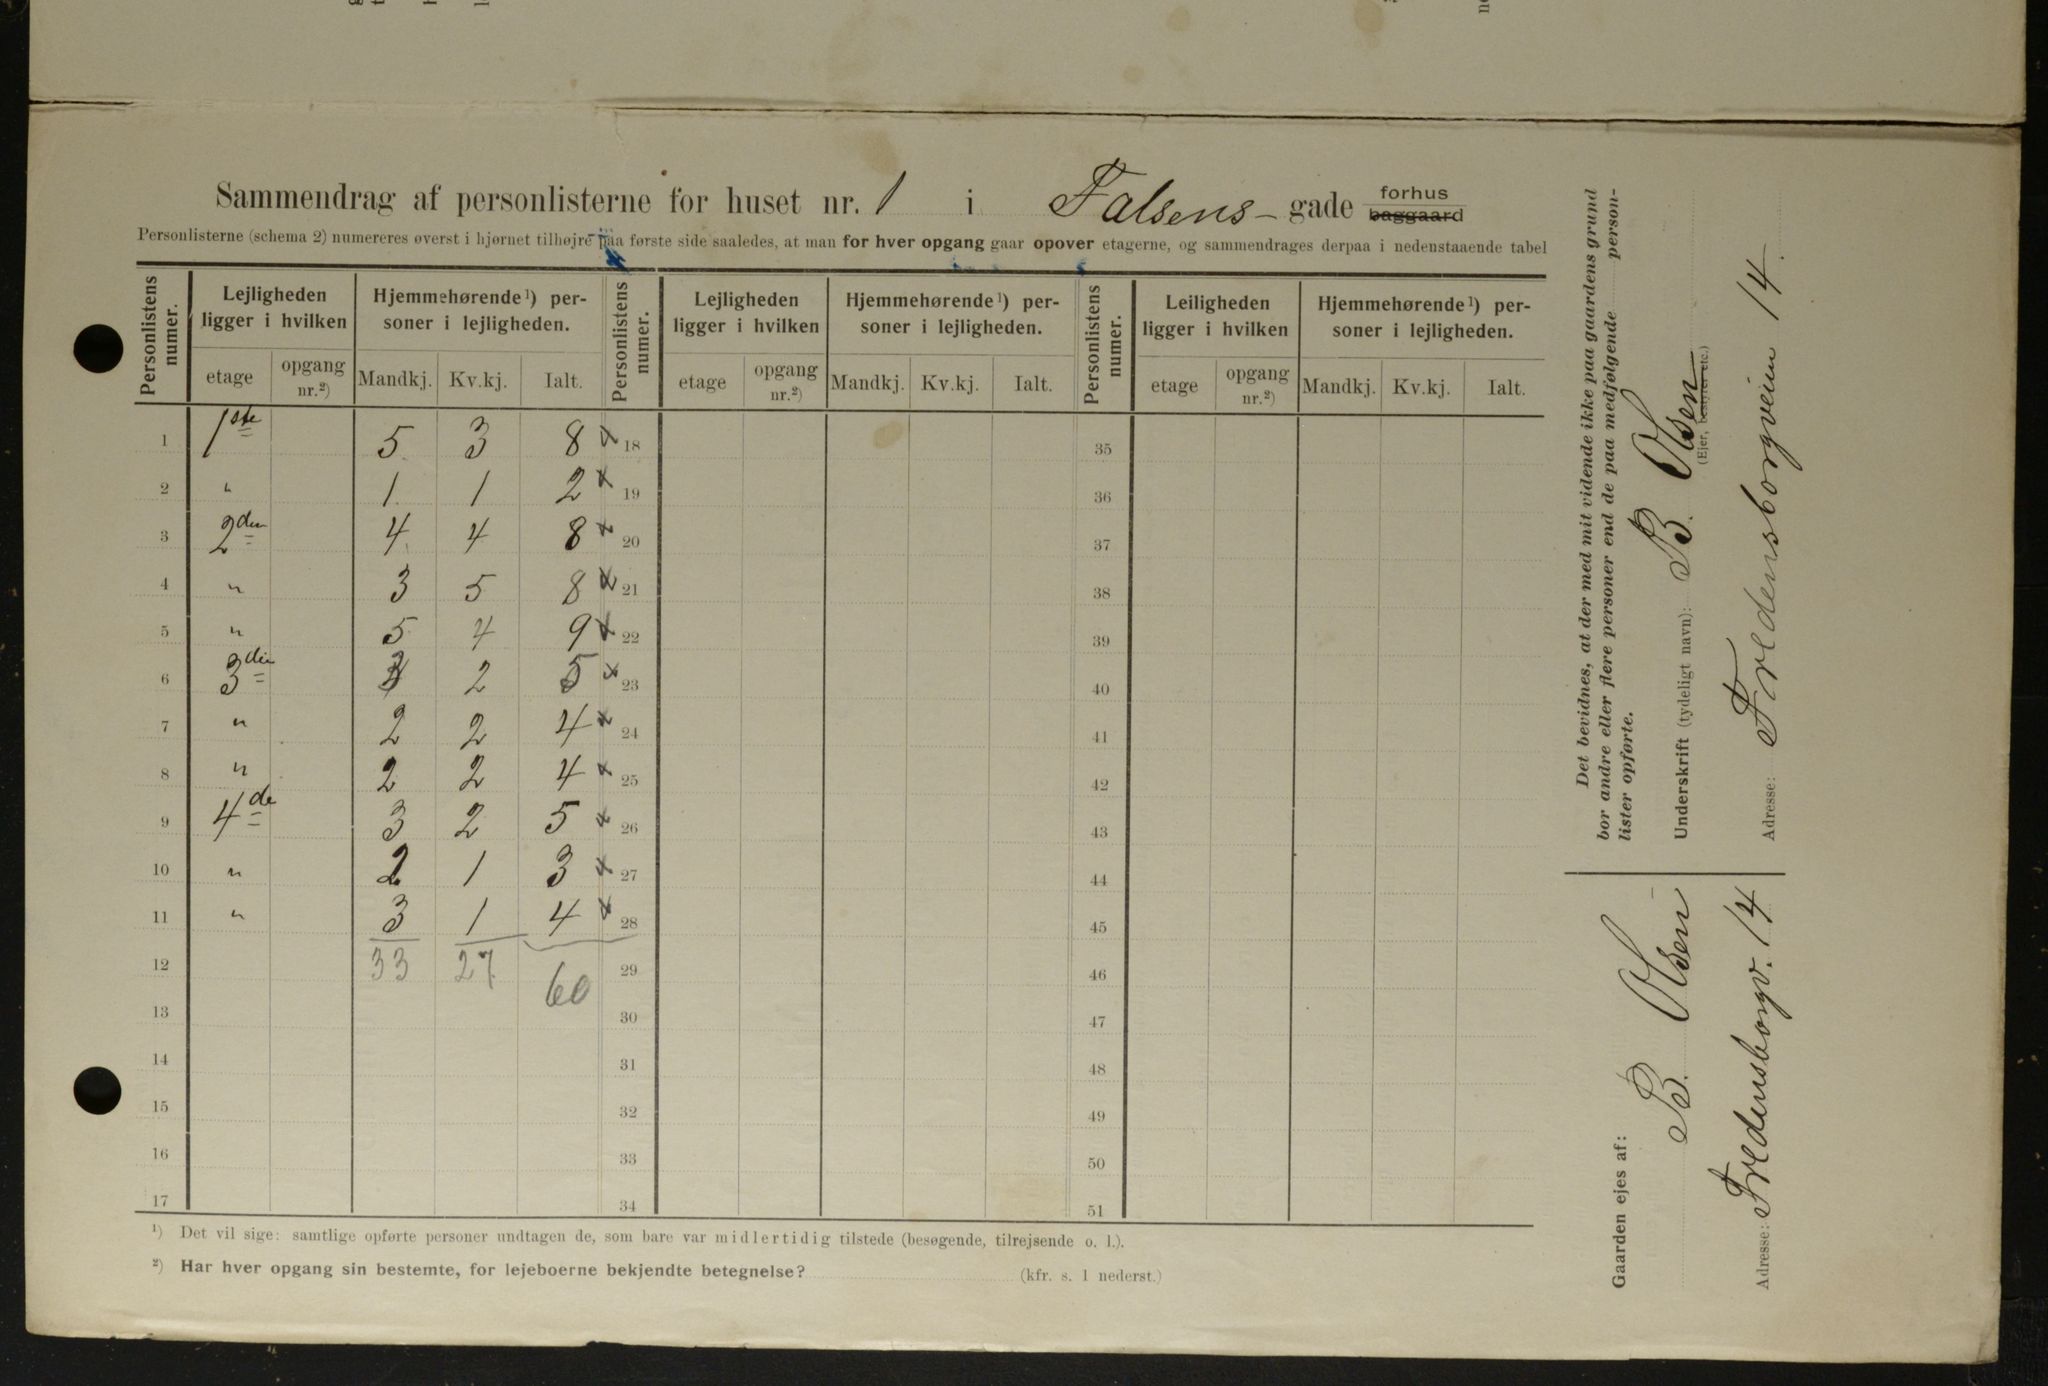 Sammendrag af personlisterne for huset nr. 1 i Falsens- gade forhus baggaard
Personlisterne (schema 2) numereres øverst i hjørnet tilhøjre paa første side saaledes, at man for hver opgang gaar opover etagerne, og sammendrages derpaa i nedenstaaende tabel
Personlistens numer. Lejligheden ligger i hvilken Hjemmehørende¹) personer i lejligheden. Personlistens numer. Lejligheden ligger i hvilken Hjemmehørende¹) personer i lejligheden. Personlistens numer. Leiligheden ligger i hvilken Hjemmehørende¹) personer i lejligheden.
etage opgang nr.²) Mandkj. Kv.kj. Ialt. etage opgang nr.²) Mandkj. Kv.kj. Ialt. etage opgang nr.²) Mandkj. Kv.kj. Ialt.
1 1ste 5 3 8 x 18 35
2 " 1 1 2 x 19 36
3 2den 4 4 8 x 20 37
4 " 3 5 8 x 21 38
5 " 5 4 9 x 22 39
6 3die 3 2 5 x 23 40
7 " 2 2 4 x 24 41
8 " 2 2 4 x 25 42
9 4de 3 2 5 x 26 43
10 " 2 1 3 x 27 44
11 " 3 1 4 x 28 45
12 33 27 60 29 46
13 30 47
14 31 48
15 32 49
16 33 50
17 34 51
¹) Det vil sige: samtlige opførte personer undtagen de, som bare var midlertidig tilstede (besøgende, tilrejsende o. l.).
²) Har hver opgang sin bestemte, for lejeboerne bekjendte betegnelse? (kfr. s. 1 nederst.)
Det bevidnes, at der med mit vidende ikke paa gaardens grund
bor andre eller flere personer end de paa medfølgende person-
lister opførte.
Underskrift (tydeligt navn): B. Olsen
(Ejer, bestyrer etc.)
Adresse: Fredensborgveien 14.
Gaarden ejes af: B. Olsen
Adresse: Fredensborgv. 14